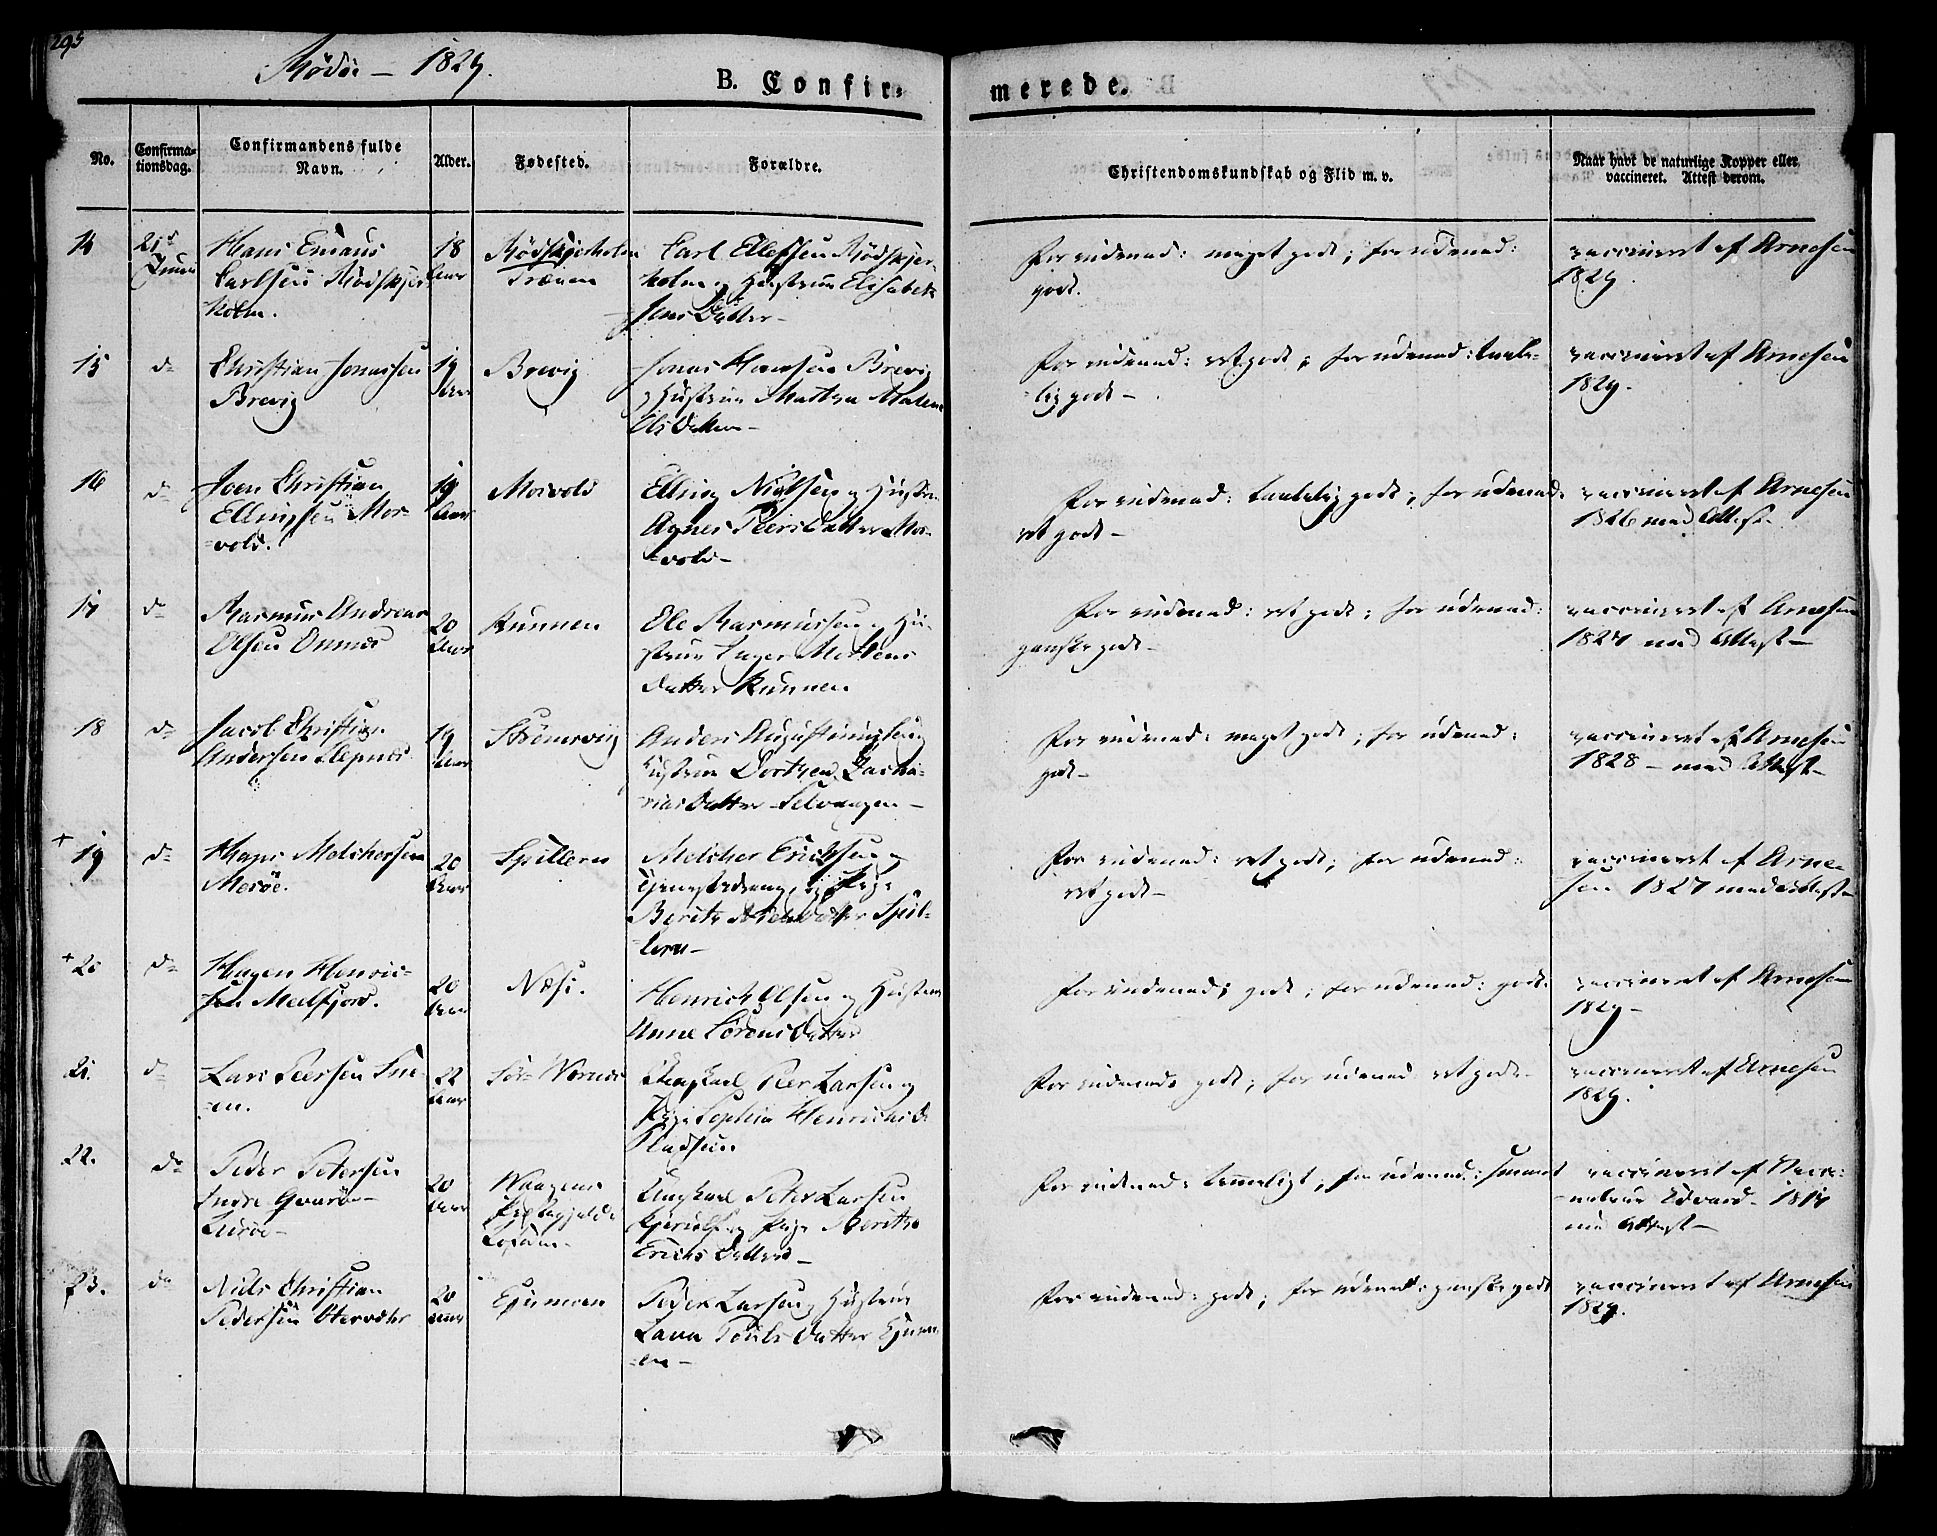 295
Rødøe – 1829.
B. Confir-
merede.
No.
Confirma-
tionsdag.
Confirmandens fulde
Navn.
Alder.
Fødested.
Forældre.
Christendomskundskab og Flid m. v.
Naar havt de naturlige Kopper eller
vaccineret. Attest derom.
14
21s
Junii
Hans Emaus
Carlsen Rødskjer
holm.
18
Aar
Rødskjerholm
Trænen
Carl Ellefsen Rødskjer-
holm og Hustrue Elisabeth
Jens Datter –
For indenad: meget godt; for udenad:
godt.
vaccineret af Arnesen
1829.
15
do
Christian Jonassen
Brevig
19
Aar
Brevig
Jonas Hansen Brevig
og Hustrue Martha Malene
Els Datter –
For indenad: ret godt; for udenad: taale-
lig godt –
vaccineret af Arnesen
1829.
16
do
Joen Christian
Ellingsen Mor-
=vold.
19
Aar
Morvold
Elling Nielsen og Hustru
Agnes Peers Datter Mor-
=vold –
For indenad: taalelig godt; for udenad:
ret godt –
vaccineret af Arnesen
1826 med Attest
17
do
Rasmus Andreas
Olsen Onnes
20
Aar
Kunnen
Ole Rasmussen og Hu-
strue Inger Mortens
Datter Kunnen
For indenad: ret godt; for udenad:
ganske godt –
vaccineret af Arnesen
1827 med Attest –
18
do
Jacob Christian
Andersen Selsnes
19
Aar
Strømsvig
Anders Augustinussen og
Hustrue Dorthea Zacha-
rias Datter Selvaagen –
For indenad: meget godt; for udenad:
godt –
vaccineret af Arnesen
1828 – med Attest –
+ 19
do
Hans Melchersen
Mesøe.
20
Aar
Spilleren
Melcher Erichsen og
Pige
Berithe Datter Spil-
=leren –
For indenad: ret godt; for udenad:
ret godt –
vaccineret af Arne-
sen 1827 med Attest –
+ 20
do
Hagen Henric-
sen Melfjord.
20
Aar
Næss.
Henrich Olsen og Hustrue
Anne Sørens Datter
For indenad: godt; for udenad: godt.
vaccineret af Arnesen
1829 –
21.
do
Lars Peersen Sne-
=en.
22
Aar
Sør-Værnes
Ungkarl Peer Larsen og
Pige Sophia Henrichs D.
Pladsen
For indenad: godt; for udenad: ret godt –
vaccineret af Arnesen
1829.
22.
do
Peder Petersen
Indre Qvarøe
Lurøe –
20
Aar
Waagens
Præstegjeld i
Lofoden –
Ungkarl Peter Larsen
og Pige Berithe
Erichs Datter –
For indenad: temmeligt; for udenad: smaat
vaccineret af Vacci-
nateur Edvard – 1814
Attest –
23.
do
Niels Christian
Pedersen Otervær
20
Aar
Ejumoen
Peder Larsen og Hustrue
Lava Pouls Datter Ejum
=en –
For indenad: godt; for udenad: ganske godt
vaccineret af Arnesen
1829.